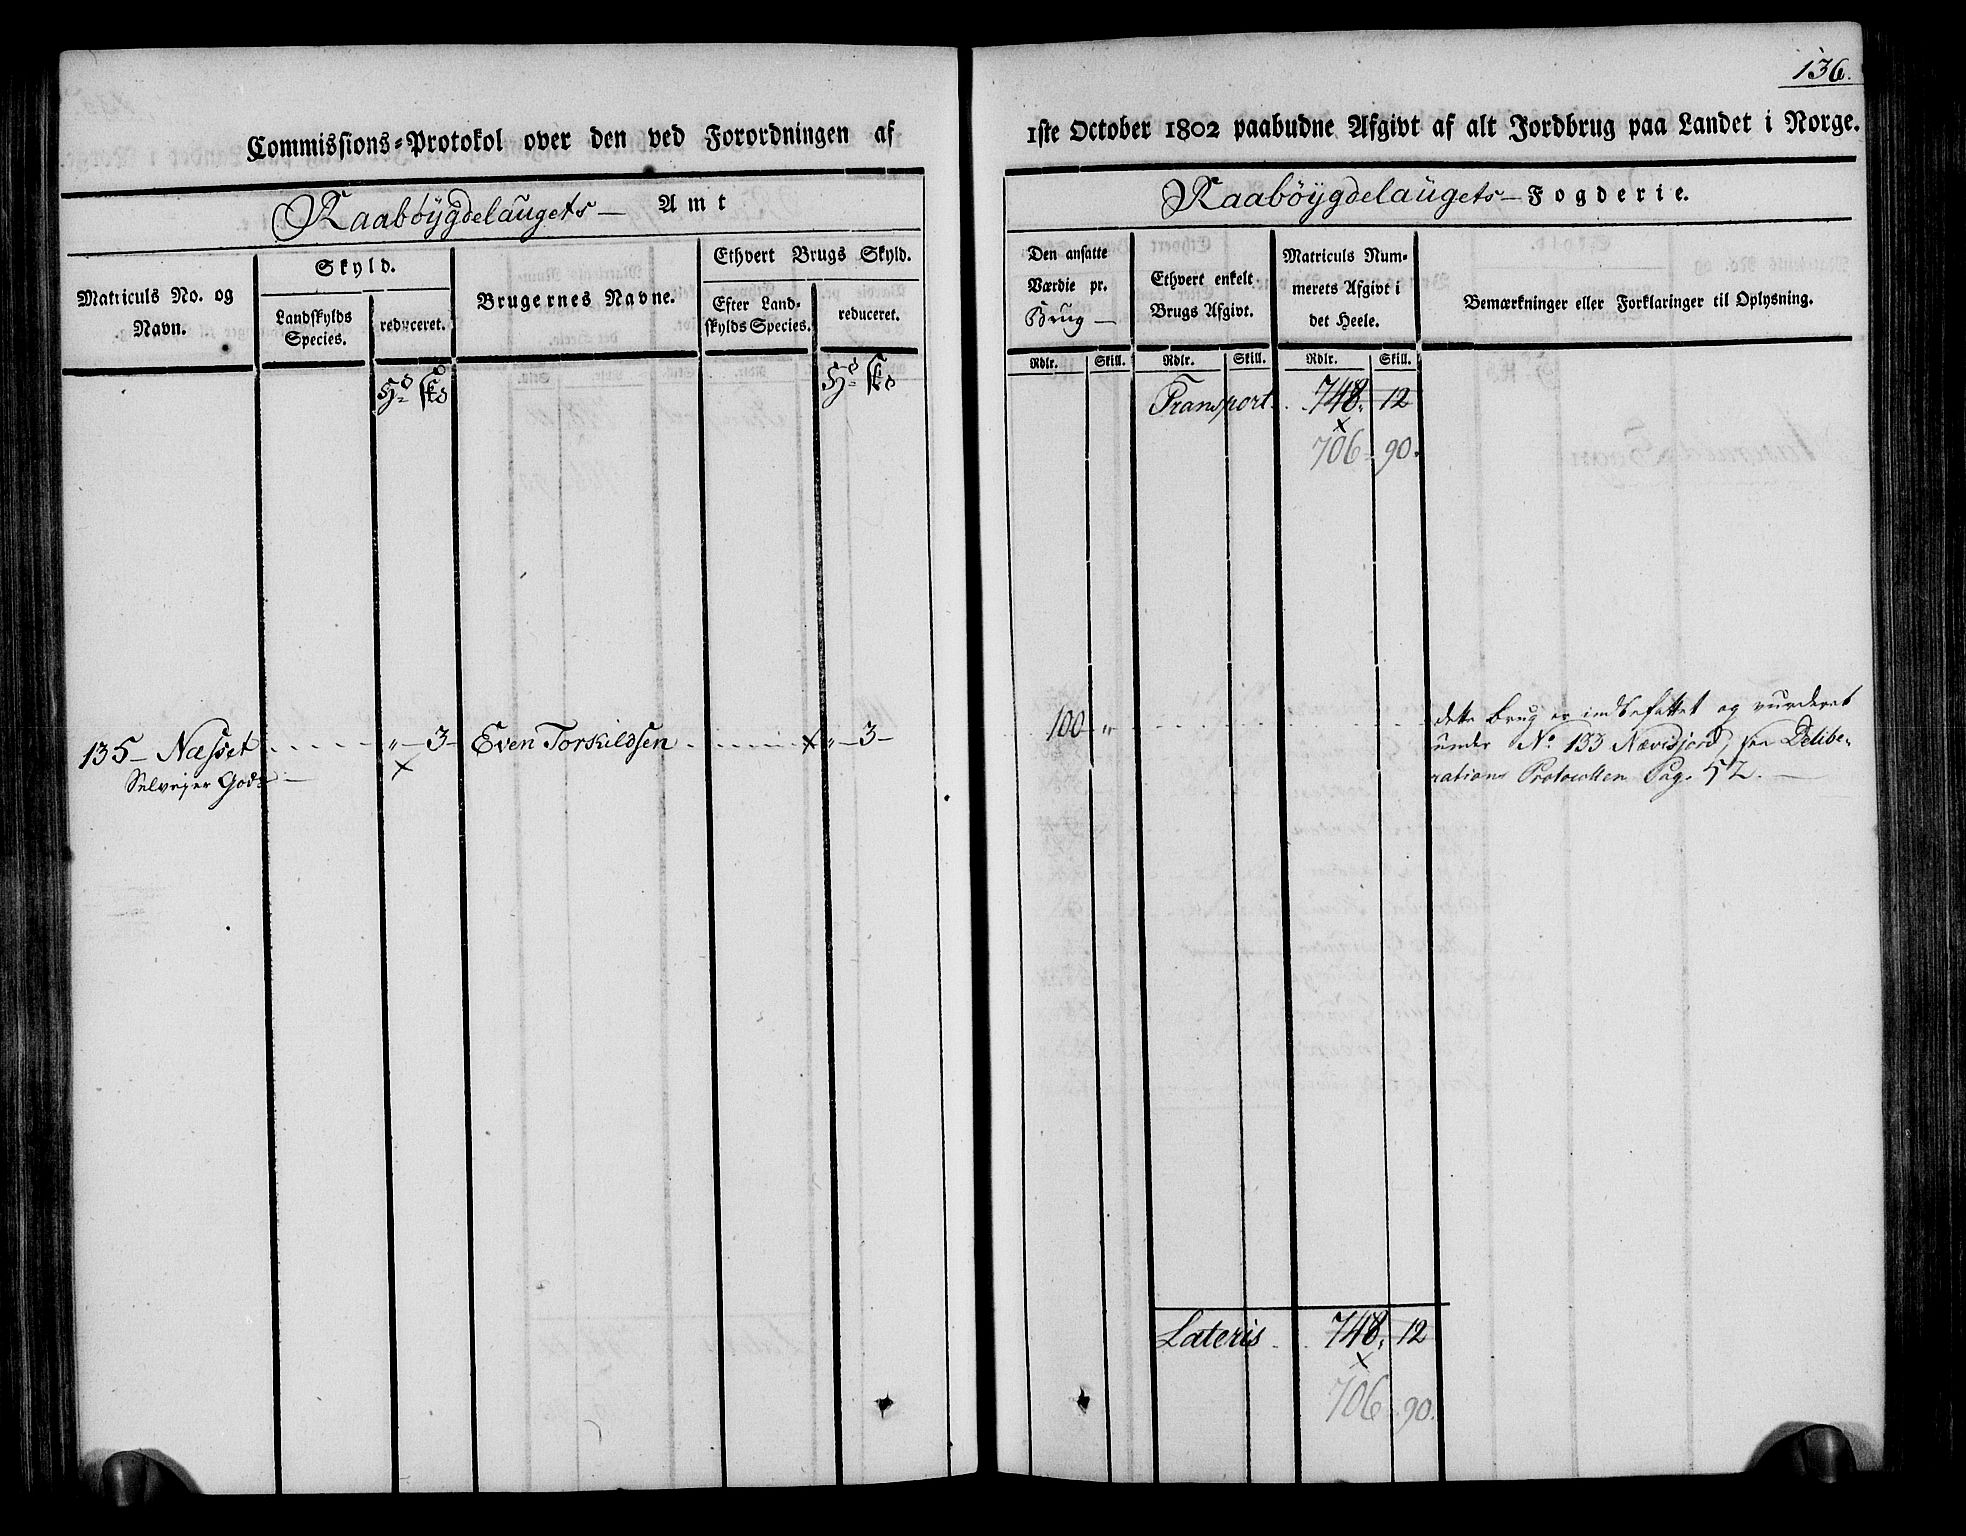 136.
Commissions-Protokol over den ved Forordningen af 1ste October 1802 paabudne Afgivt af alt Jordbrug paa Landet i Norge.
Raabøygdelaugets — Amt
Raabøygdelaugets — Fogderie.
Matriculs No. og Navn.
Skyld.
Landskylds Species.
reduceret.
Brugernes Navne.
Ethvert Brugs Skyld.
Efter Landskylds Species.
reduceret.
Den ansatte Værdie pr. Brug —
Ethvert enkelt Brugs Afgivt.
Matriculs Nummerets Afgivt i det Heele.
Bemærkninger eller Forklaringer til Oplysning.
Rdlr. Skill. Rdlr. Skill. Rdlr. Skill.
Transport. 748. 12
706. 90.
135 — Næsset „ — 3 — Even Torkildsen × „ — 3 — 100 „
Selveyer Gods — ×
dette Brug er indbefattet og vurderet
under No 133 Nævisjord, see Delibe-
rations Protocollen Pag. 52. —
Lateris 748. 12
×
706. 90.